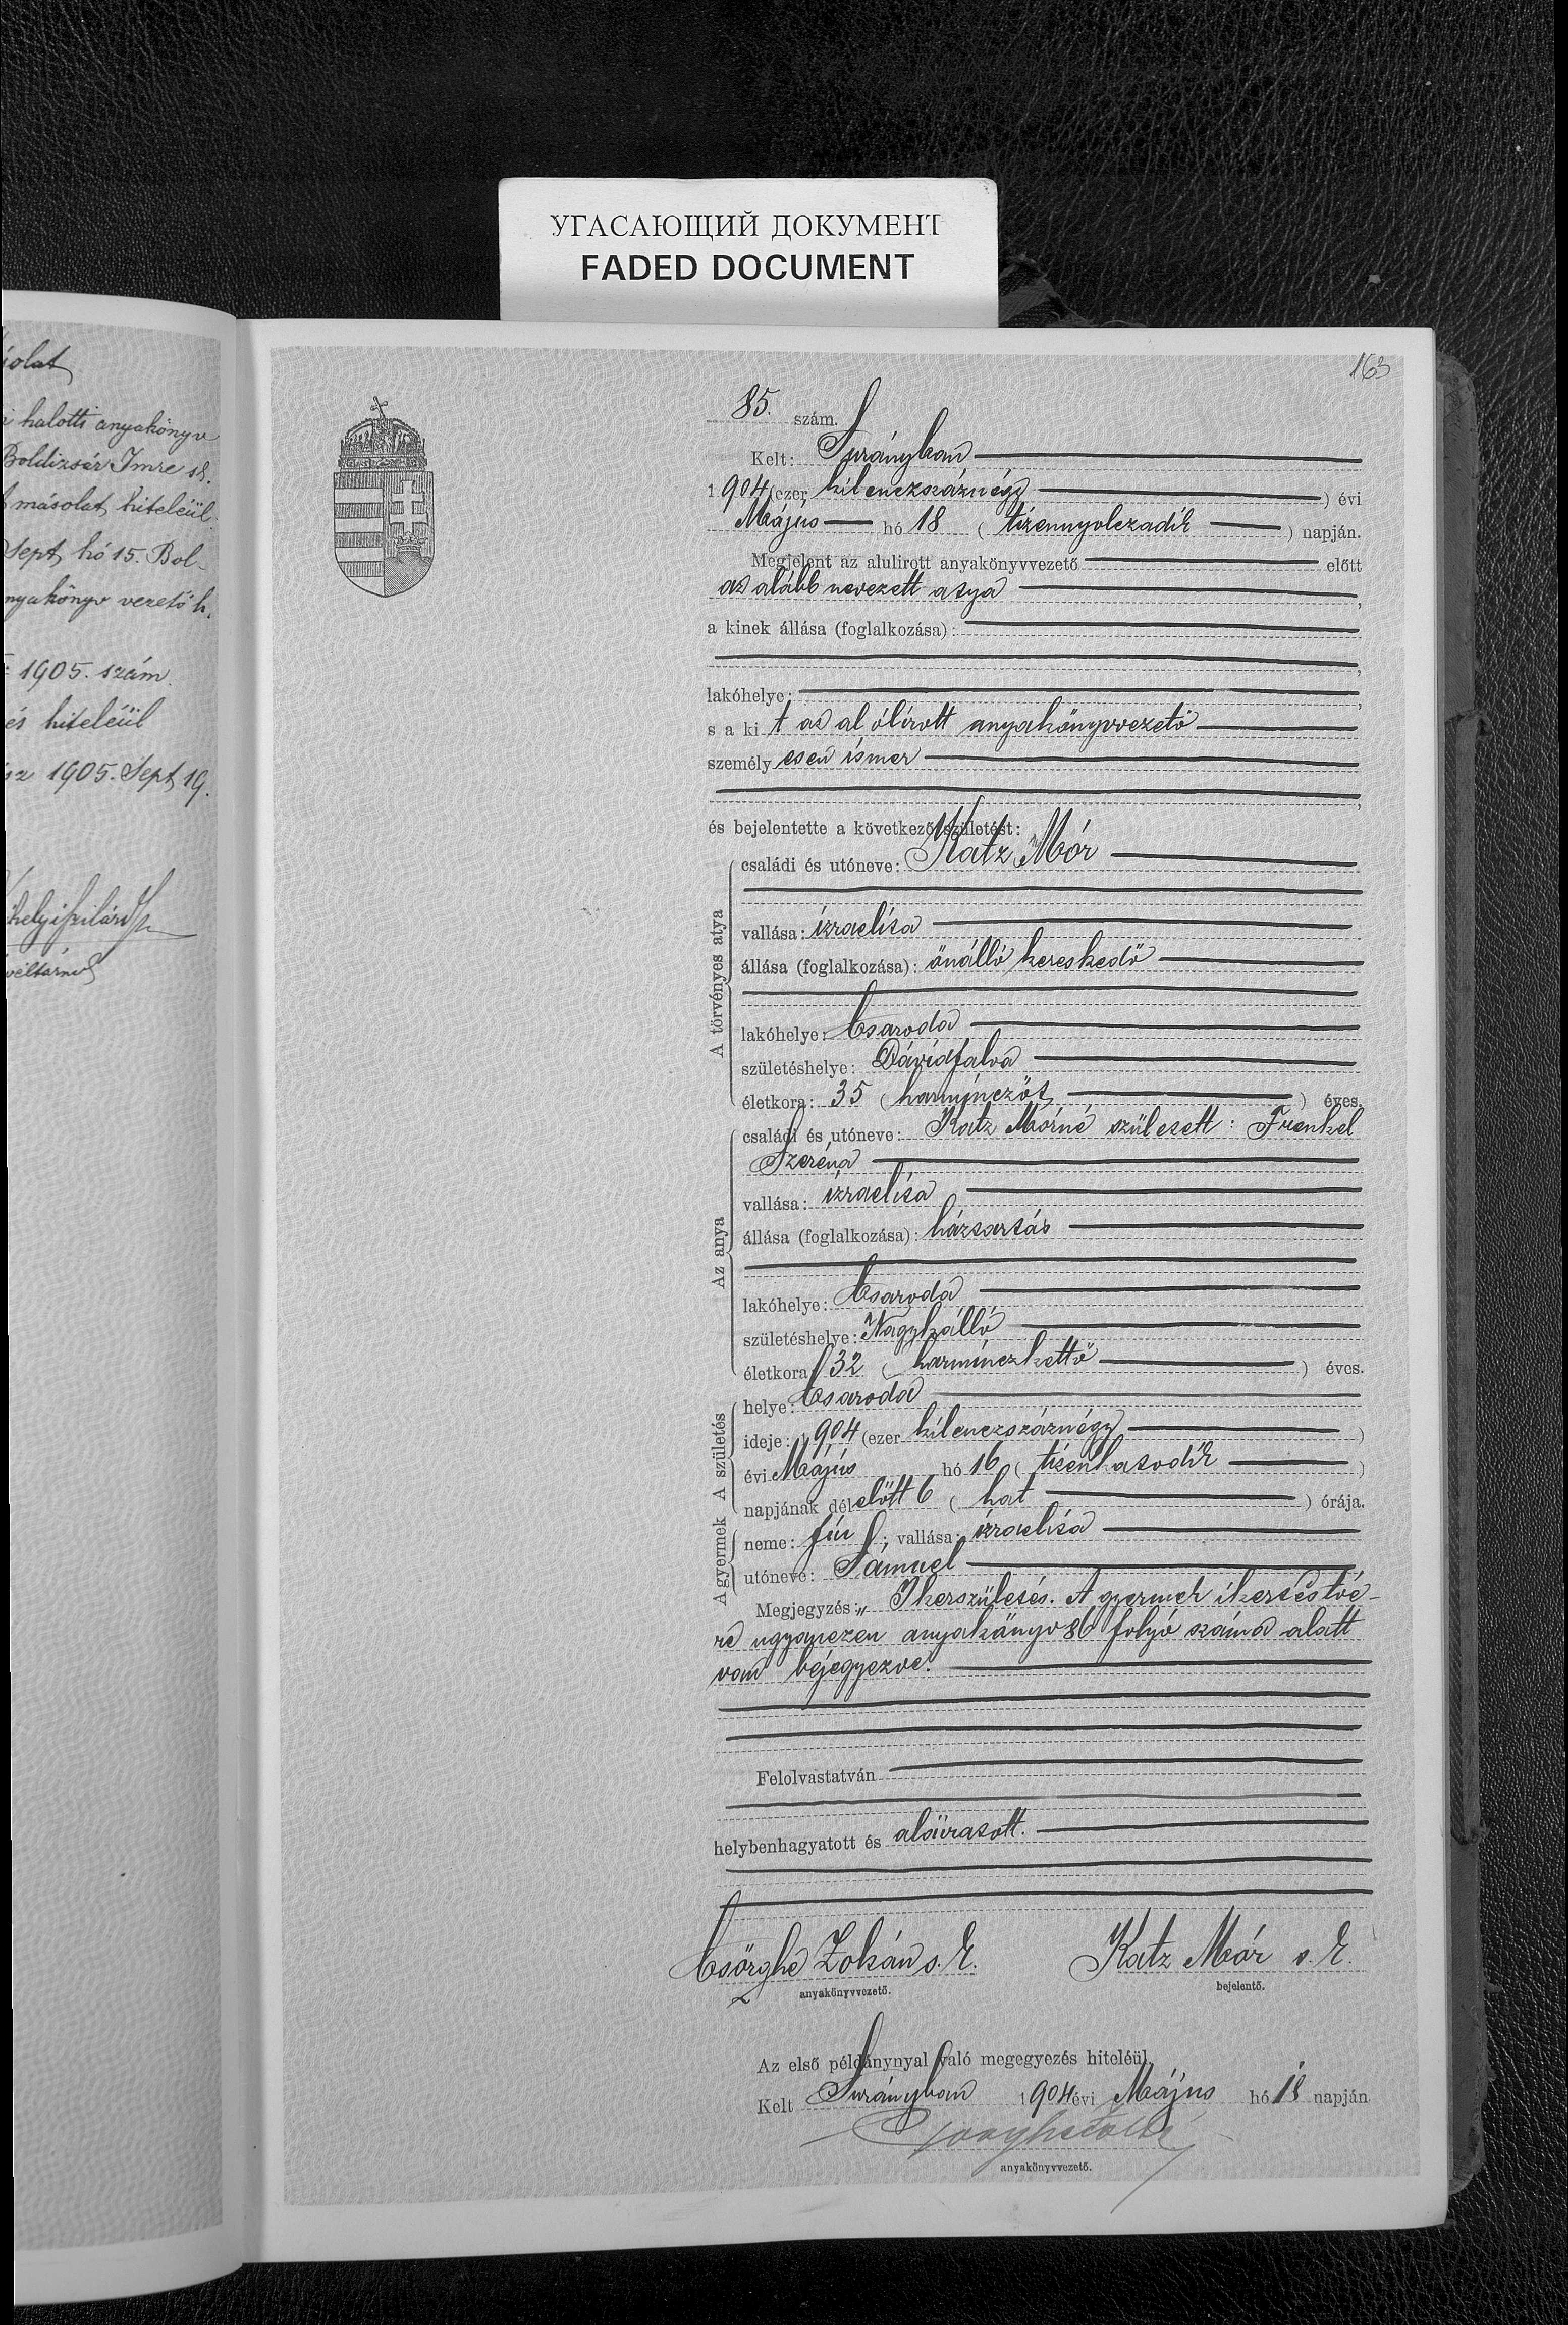 УГАСАЮЩИЙ ДОКУМЕНТ
FADED DOCUMENT
halotti anyakönyv
Boldizsár Imre sk.
másolat hiteléül
Sept. hó 15. Bol-
vezető h.
1905. szám
és hiteléül
1905. Sept 19.
163
85. szám.
Kelt: Surányban
1904 (ezer kilenczszáznégy) évi
Május hó 18 (tizennyolczadik) napján.
Megjelent az alulirott anyakönyvvezető előtt
az alább nevezett atya,
a kinek állása (foglalkozása):
lakóhelye:
s a ki t az alólírott anyakönyvvezető
személy esen ismer
és bejelentette a következő születést:
A törvényes atya
családi és utóneve: Katz Mór
vallása: izraelita
állása (foglalkozása): önálló kereskedő
lakóhelye: Csaroda
születéshelye: Dávidfalva
életkora: 35 (harminczöt) éves.
Az anya
családi és utóneve: Katz Mórné született: Frenkel
Szeréna
vallása: izraelita
állása (foglalkozása): háztartás
lakóhelye: Csaroda
születéshelye: Nagykálló
életkora: 32 (harminczkettő) éves.
A születés
helye: Csaroda
ideje: 1904 (ezer kilenczszáznégy)
évi Május hó 16 (tizenhatodik)
napjának délelőtt 6 (hat) órája.
A gyermek
neme: fiú; vallása: izraelita
utóneve: Sámuel
Megjegyzés: „Ikerszületés. A gyermek ikertestvé-
re ugyanezen anyakönyv 86 folyó száma alatt
van bejegyezve.
Felolvastatván
helybenhagyatott és aláíratott.
Csörghe Zoltán s. k. Katz Mór s. k.
anyakönyvvezető. bejelentő.
Az első példánynyal való megegyezés hiteléül.
Kelt Surányban 1904 évi Május hó 18 napján
anyakönyvvezető.